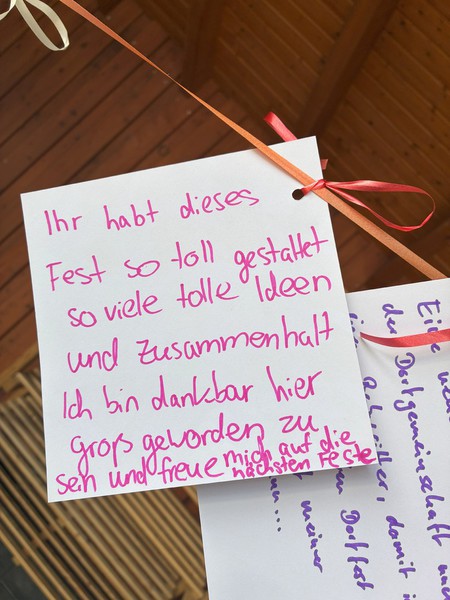 Ihr habt dieses
Fest so toll gestaltet
so viele tolle Ideen
und Zusammenhalt
Ich bin dankbar hier
groß geworden zu
sein und freue mich auf die
nächsten Feste
der Dorfgemeinschaft und
damit
Dorffest
meiner